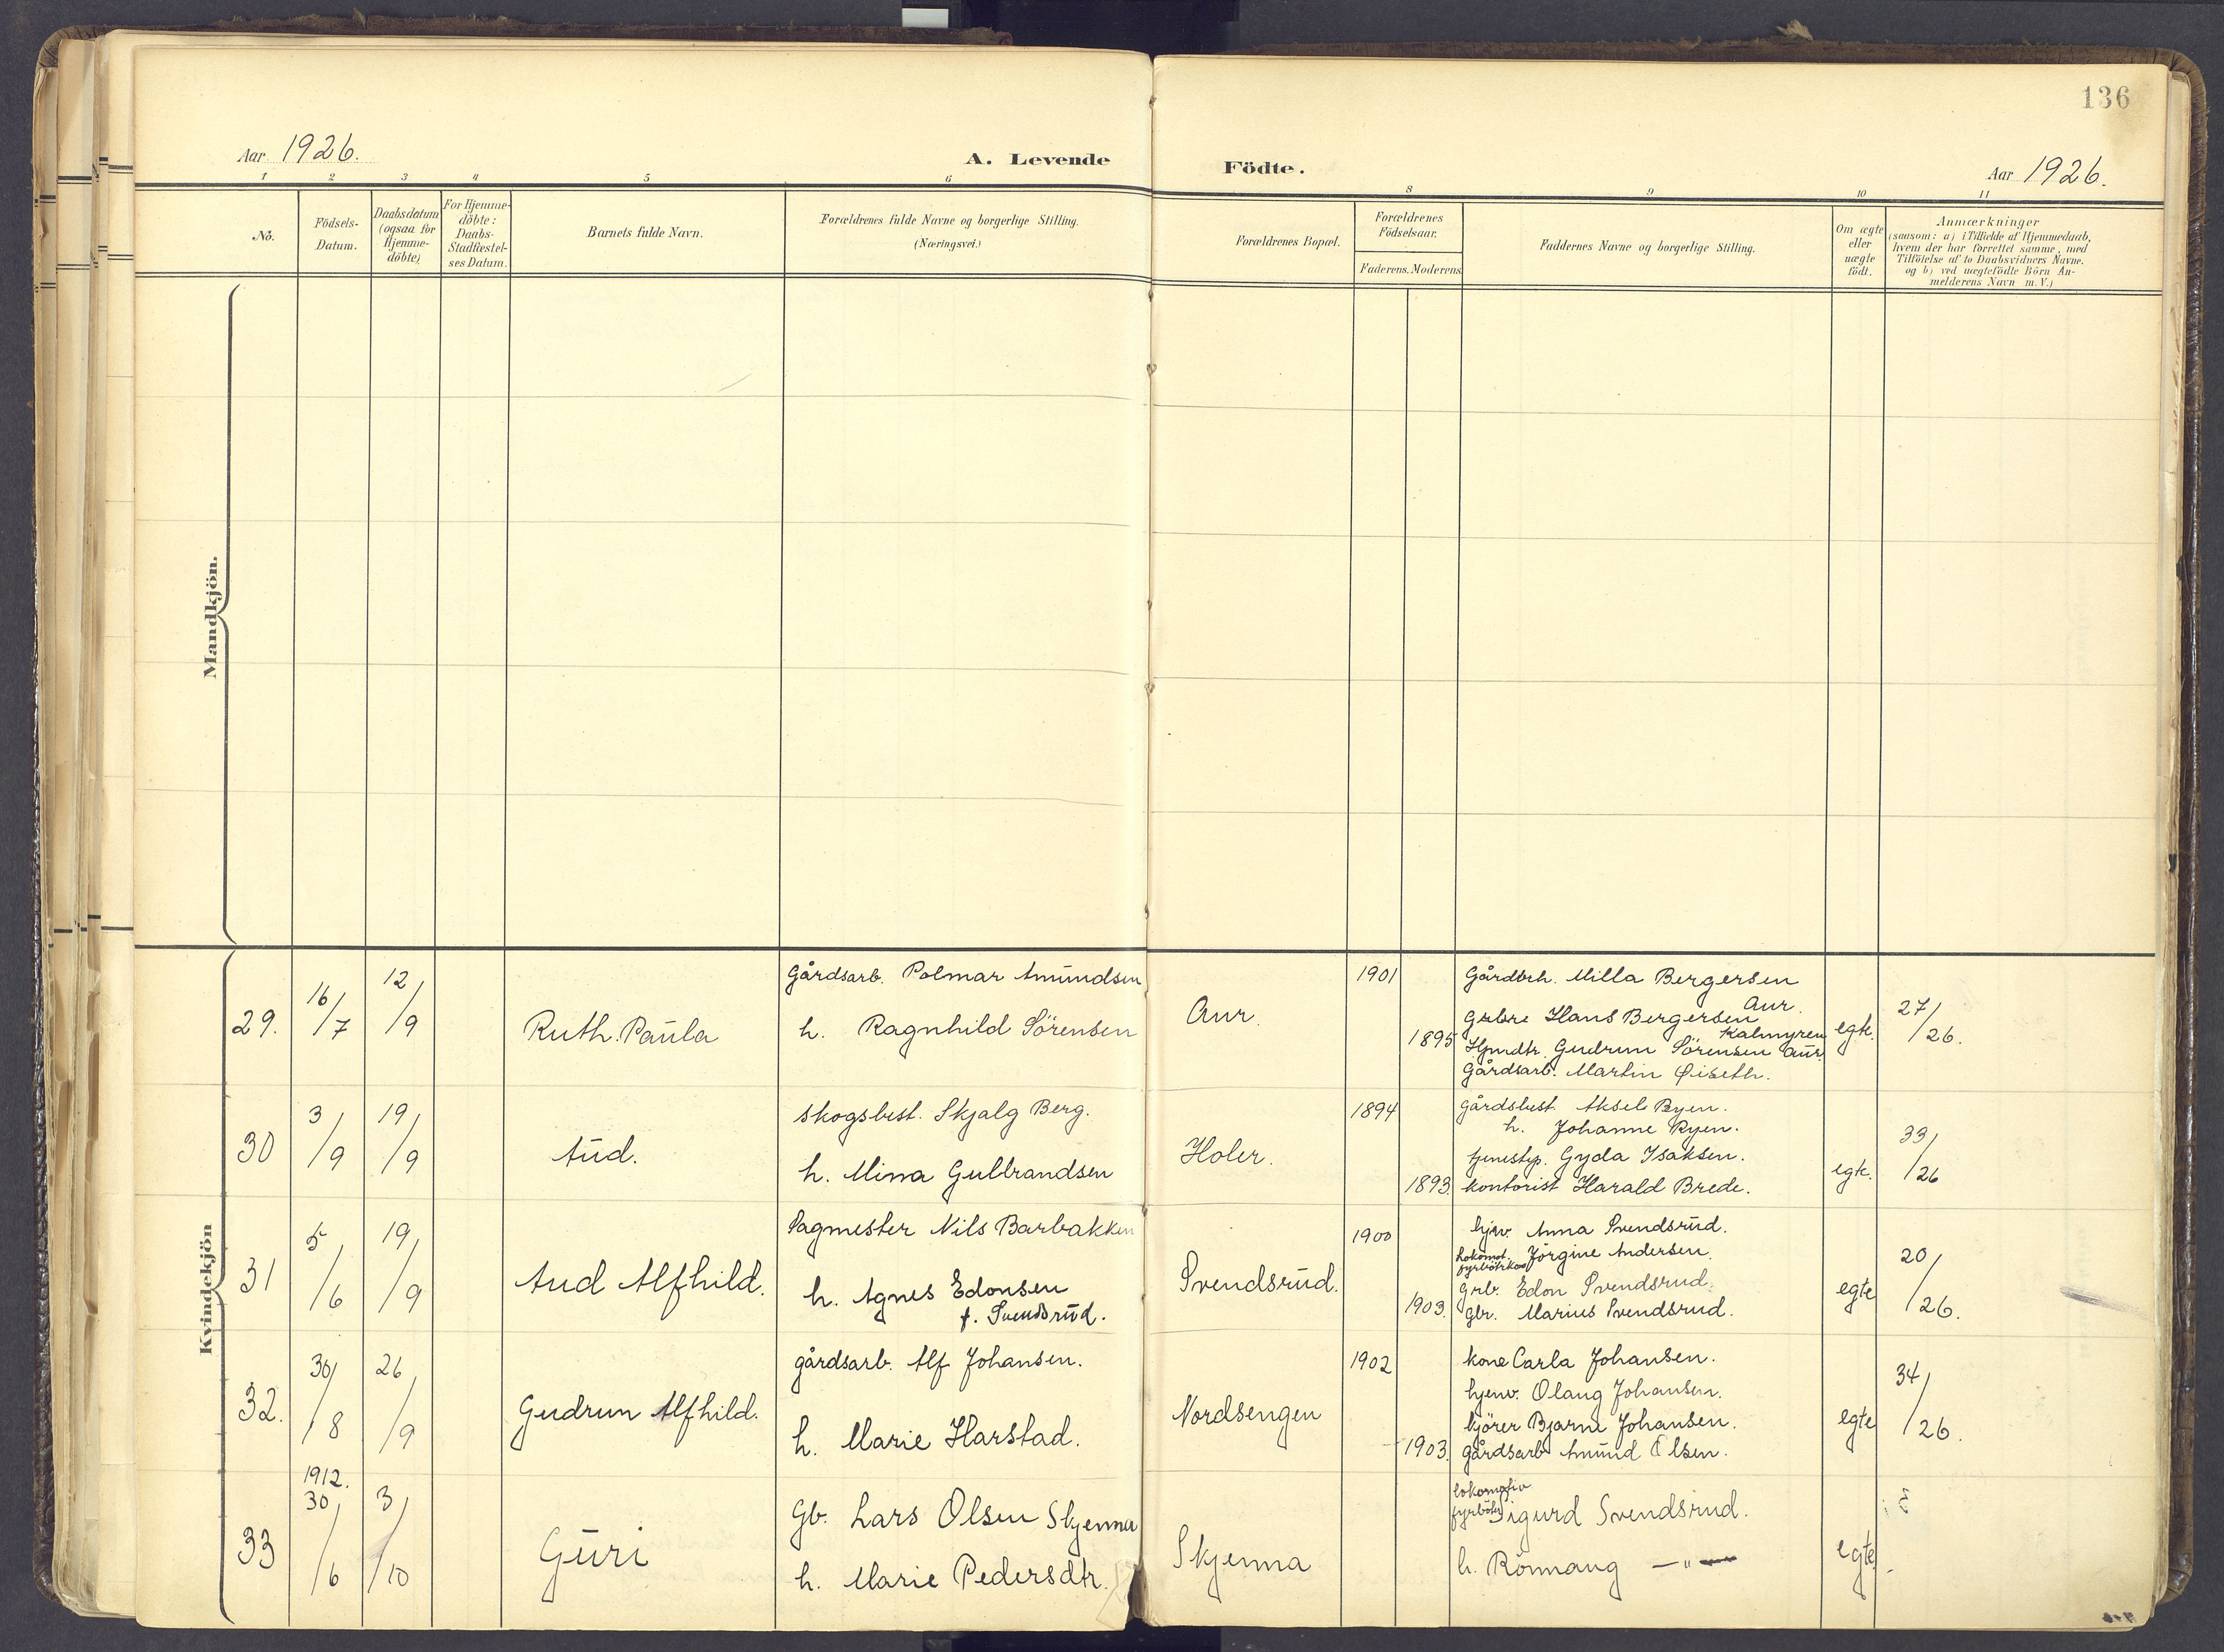 136
Aar 1926.
A. Levende
Födte.
Aar 1926.
1 2 3 4 5 6 8 9 10 11
No.
Födsels-
Datum.
Daabsdatum
(ogsaa for
Hjemme-
döbte)
For Hjemme-
döbte:
Daabs-
Stadfæstel-
ses Datum.
Barnets fulde Navn.
Forældrenes fulde Navne og borgerlige Stilling.
(Næringsvei.)
Forældrenes Bopæl.
Forældrenes
Födselsaar.
Faderens. Moderens
Faddernes Navne og borgerlige Stilling.
Om ægte
eller
uægte
födt.
Anmærkninger
(saasom: a) i Tilfælde af Hjemmedaab,
hvem der har forrettet samme, med
Tilföielse af to Daabsvidners Navne.
og b) ved uægtefödte Börn An-
melderens Navn m.V.)
Mandkjön.
Kvindekjön
29.
16/7
12/9
Ruth. Paula
Gårdsarb. Polmar Amundsen
h. Ragnhild Sörensen
Aur.
1901
1895
Gårdbrh. Milla Bergersen
Aur.
Grbr Hans Bergersen
Kalmyren
Hjmdtr. Gudrun Sörensen Aur.
Gårdsarb. Martin Øiseth.
egte.
27/26.
30
3/9
19/9
Aud.
Skogsbest. Skjalg Berg.
h. Minna Gulbrandsen
Holer.
1894
1893.
Gårdsbest. Aksel Ryen.
h. Johanne Ryen.
tjenestep. Gyda Isaksen.
kontorist Harald Brede.
egte.
33/26
31
5/6
19/9
Aud Alfhild.
Sagmester Nils Barbakken
h. Agnes Edonsen
f. Svendsrud.
Svendsrud.
1900
1903.
hjv. Anna Svendsrud.
Lokomot. fyrböterkone Jörgine Andersen.
Grb. Edon Svendsrud.
Gbr. Marius Svendsrud.
egte
20/26.
32.
30/8
26/9
Gudrun Alfhild.
gårdsarb. Alf Johansen.
h. Marie Harstad.
Nordsengen
1902
1903.
kone Carla Johansen.
hjemv. Olaug Johansen.
kjörer Bjarne Johansen.
gårdsarb Amund Olsen.
egte
34/26.
33
1912.
30/6
3/10
Guri
Gb. Lars Olsen Skjenna
h. Marie Pedersdtr.
Skjenna
lokomotiv
fyrböter Sigurd Svendsrud.
h. Rönnaug — " —
egte